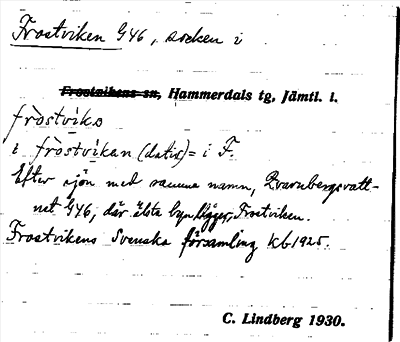 Frostviken G46, socken i
Frostvikens sn, Hammerdals tg, Jämtl. l.
fròstvìka
i fròstvìkan (dativ) = i F.
Efter sjön med samma namn, Kvarnbergsvatt-
net G46, där älsta byn ligger, Frostviken.
Frostvikens Svenska församling kb 1925.
C. Lindberg 1930.